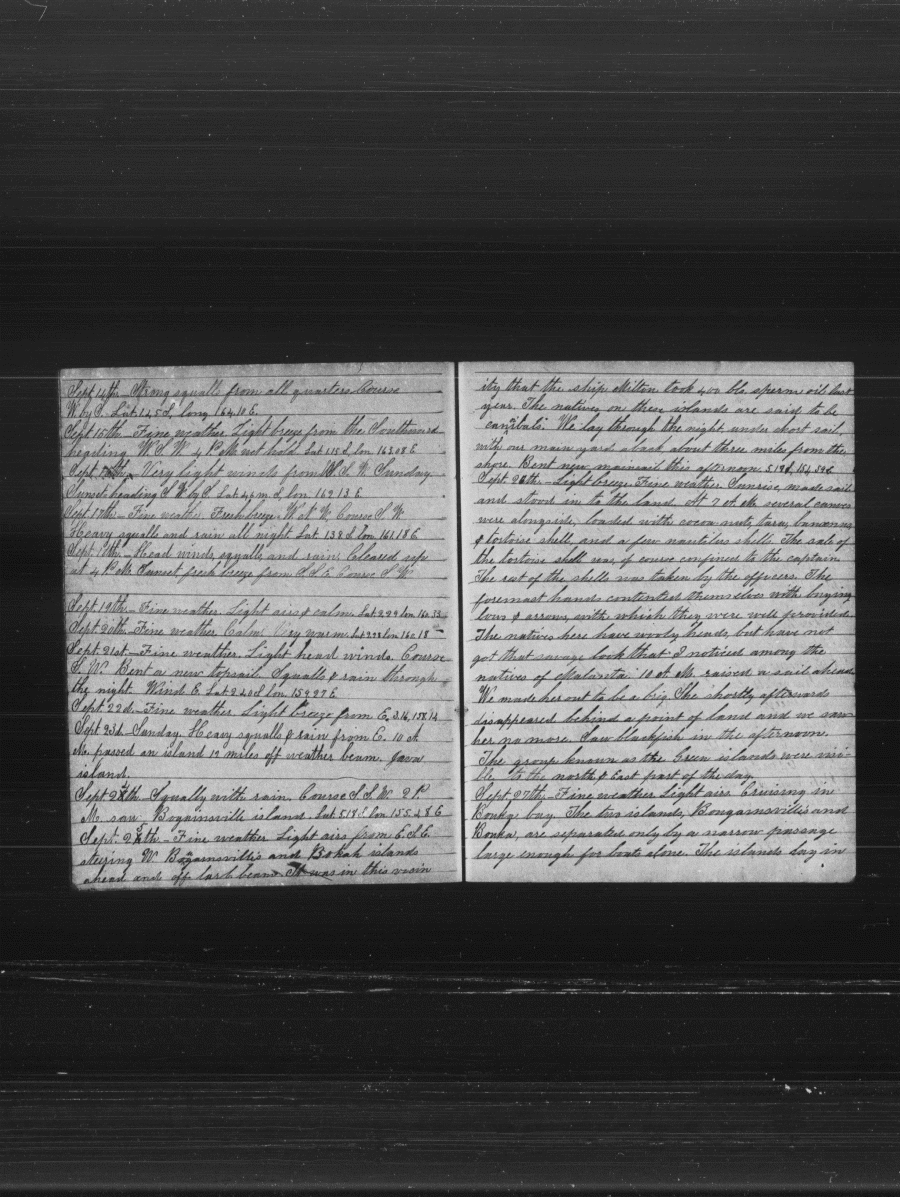 Sept 14th - Strong squalls from all quarters Course
W. by S. Lat 1.45 S, long 164.10 E.
Sept 15th - Fine weather Light breeze from the Southward
heading W. S. W. 4 P.M. wet hold Lat 1.15 S, lon 163.08 E
Sept 16th Very light winds from W. S. W. Sunday
Sunset heading S W by S. Lat 46 m S, lon 162 13 E.
Sept 17th - Fine weather Fresh breeze W. N. W. Course S W.
Heavy squalls and rain all night Lat 1 38 S lon 161 18 E
Sept 18th - Head winds squalls and rain. Cleared up
at 4 P.M. Sunset fresh breeze from S S E Course S W
Sept 19th - Fine weather Light airs & calm. Lat 2.29 lon 160.33
Sept 20th Fine weather Calm Very warm. Lat 2.28 lon 160.18
Sept. 21st - Fine weather. Light head winds. Course
S. W. Bent a new topsail. Squalls & rain through
the night Wind E. Lat 2.40 S lon. 159 27 E
Sept. 22d - Fine weather Light breeze from E. 3.14, 158.14
Sept 23d - Sunday. Heavy squalls & rain from E. 10 A
M. passed an island 12 miles off weather beam. Java
island.
Sept 24th - Squally with rain Course S S. W. 2 P
M. saw Bogainsville island. Lat 5.18 S. lon 155.48 E
Sept. 25th - Fine weather Light airs from E. S. E.
steering W Bogainsvilles and Bokah islands
ahead and off larb beam. It was in this vicin
ity that the ship Milton took 400 bls. sperm oil last
year. The natives on these islands are said to be
canibals. We lay through the night under short sail
with our main yard aback about three miles from the
shore. Bent new mainsail this afternoon 5.19 S, 154.52 E
Sept. 26th - Light breeze Fine weather Sunrise made sail
and stood in to the land. At 7 A. M. several canoes
were alongside, loaded with cocoa nuts, taro, bananas
& tortoise shell, and a few nautilus shells. The sale of
the tortoise shell was of course confined to the captain
The rest of the shells was taken by the officers. The
foremast hands contented themselves with buying
bows & arrows, with which they were well provided
The natives here have wooly heads, but have not
got that savage look that I noticed among the
natives of Malaieta. 10 A. M. raised a sail ahead
We made her out to be a brig. She shortly afterwards
dissappeared behind a point of land and we saw
her no more. Saw blackfish in the afternoon.
The group known as the Green islands were visi
ble to the north & East part of the day.
Sept 27th - Fine weather Light airs Cruising in
Bouka bay. The two islands, Bongainsvilles and
Bouka, are separated only by a narrow passage
large enough for boats alone. The islands lay in